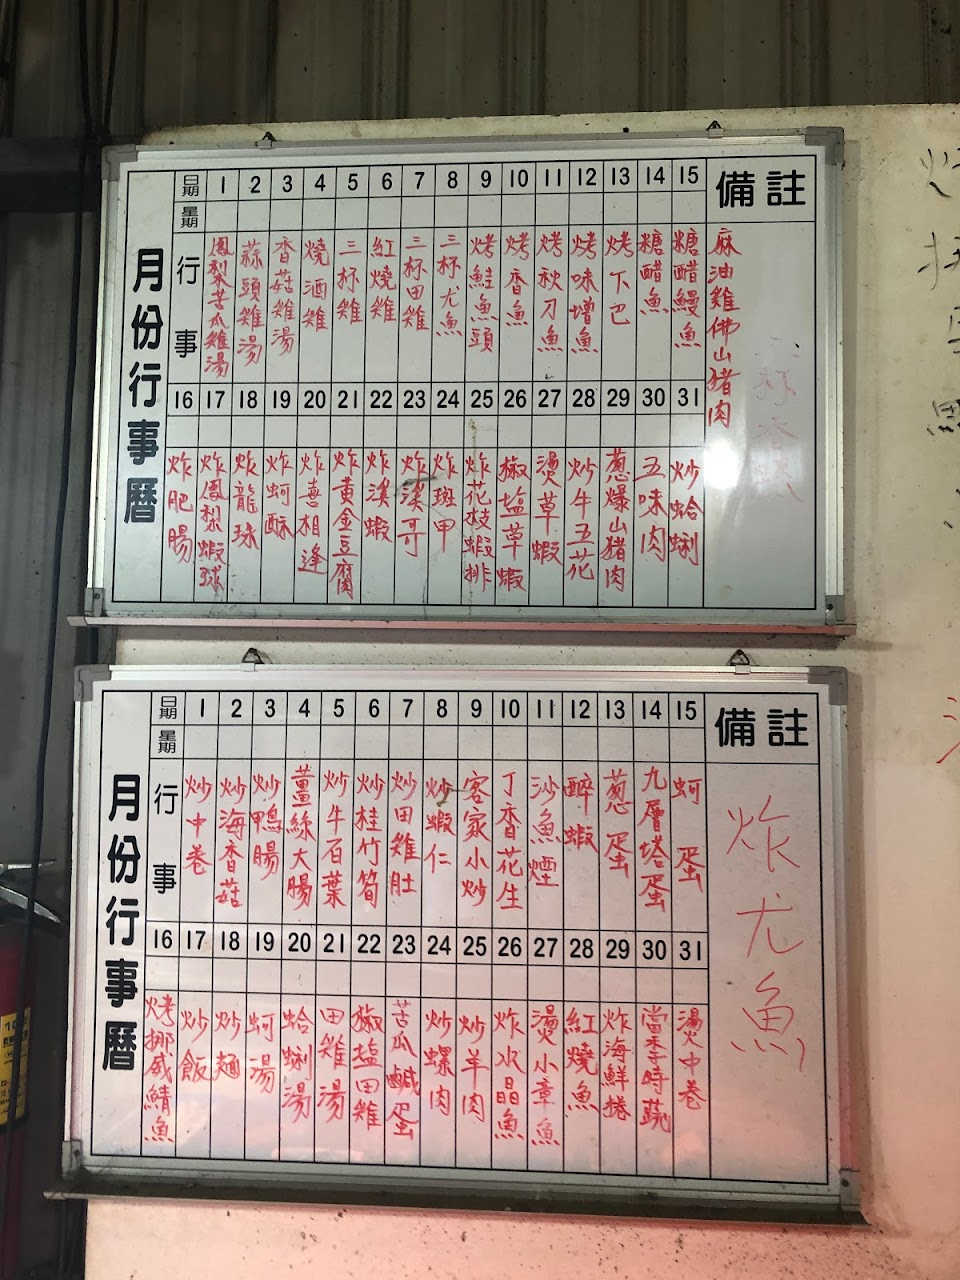 月份行事曆
日期 1 2 3 4 5 6 7 8 9 10 11 12 13 14 15 備註
星期
行事
鳳梨苦瓜雞湯
蒜頭雞湯
香菇雞湯
燒酒雞
三杯雞
紅燒雞
三杯田雞
三杯尤魚
烤鮭魚頭
烤香魚
烤秋刀魚
烤味增魚
烤下巴
糖醋魚
糖醋鰻魚
麻油雞佛山豬肉
16 17 18 19 20 21 22 23 24 25 26 27 28 29 30 31
炸肥腸
炸鳳梨蝦球
炸龍珠
炸蚵酥
炸喜相逢
炸黃金豆腐
炸溪蝦
炸溪哥
炸斑甲
炸花枝蝦排
椒塩草蝦
燙草蝦
炒牛五花
蔥爆山豬肉
五味肉
炒蛤蜊
月份行事曆
日期 1 2 3 4 5 6 7 8 9 10 11 12 13 14 15 備註
星期
行事
炒中卷
炒海香菇
炒鴨腸
薑絲大腸
炒牛百葉
炒桂竹筍
炒田雞肚
炒蝦仁
客家小炒
丁香花生
沙魚煙
醉蝦
蔥蛋
九層塔蛋
蚵蛋
炸尤魚
16 17 18 19 20 21 22 23 24 25 26 27 28 29 30 31
烤挪威鯖魚
炒飯
炒麵
蚵湯
蛤蜊湯
田雞湯
椒塩田雞
苦瓜鹹蛋
炒螺肉
炒羊肉
炸水晶魚
燙小章魚
紅燒魚
炸海鮮捲
當季時蔬
燙中卷